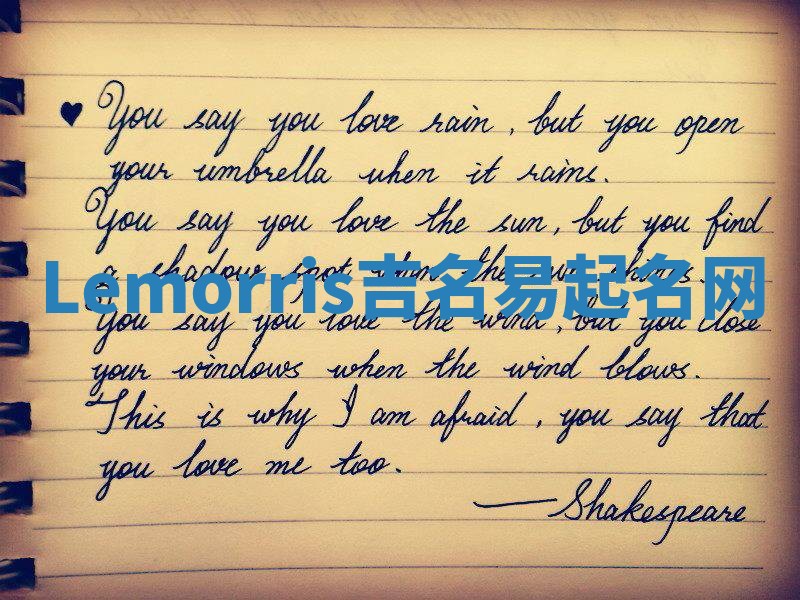 ♥ You say you love rain, but you open
your umbrella when it rains.
You say you love the sun, but you find
a shadow spot when the sun shines.
Lemorris吉名易起名网
You say you love the wind, but you close
your windows when the wind blows.
This is why I am afraid, you say that
you love me too.
—Shakespeare